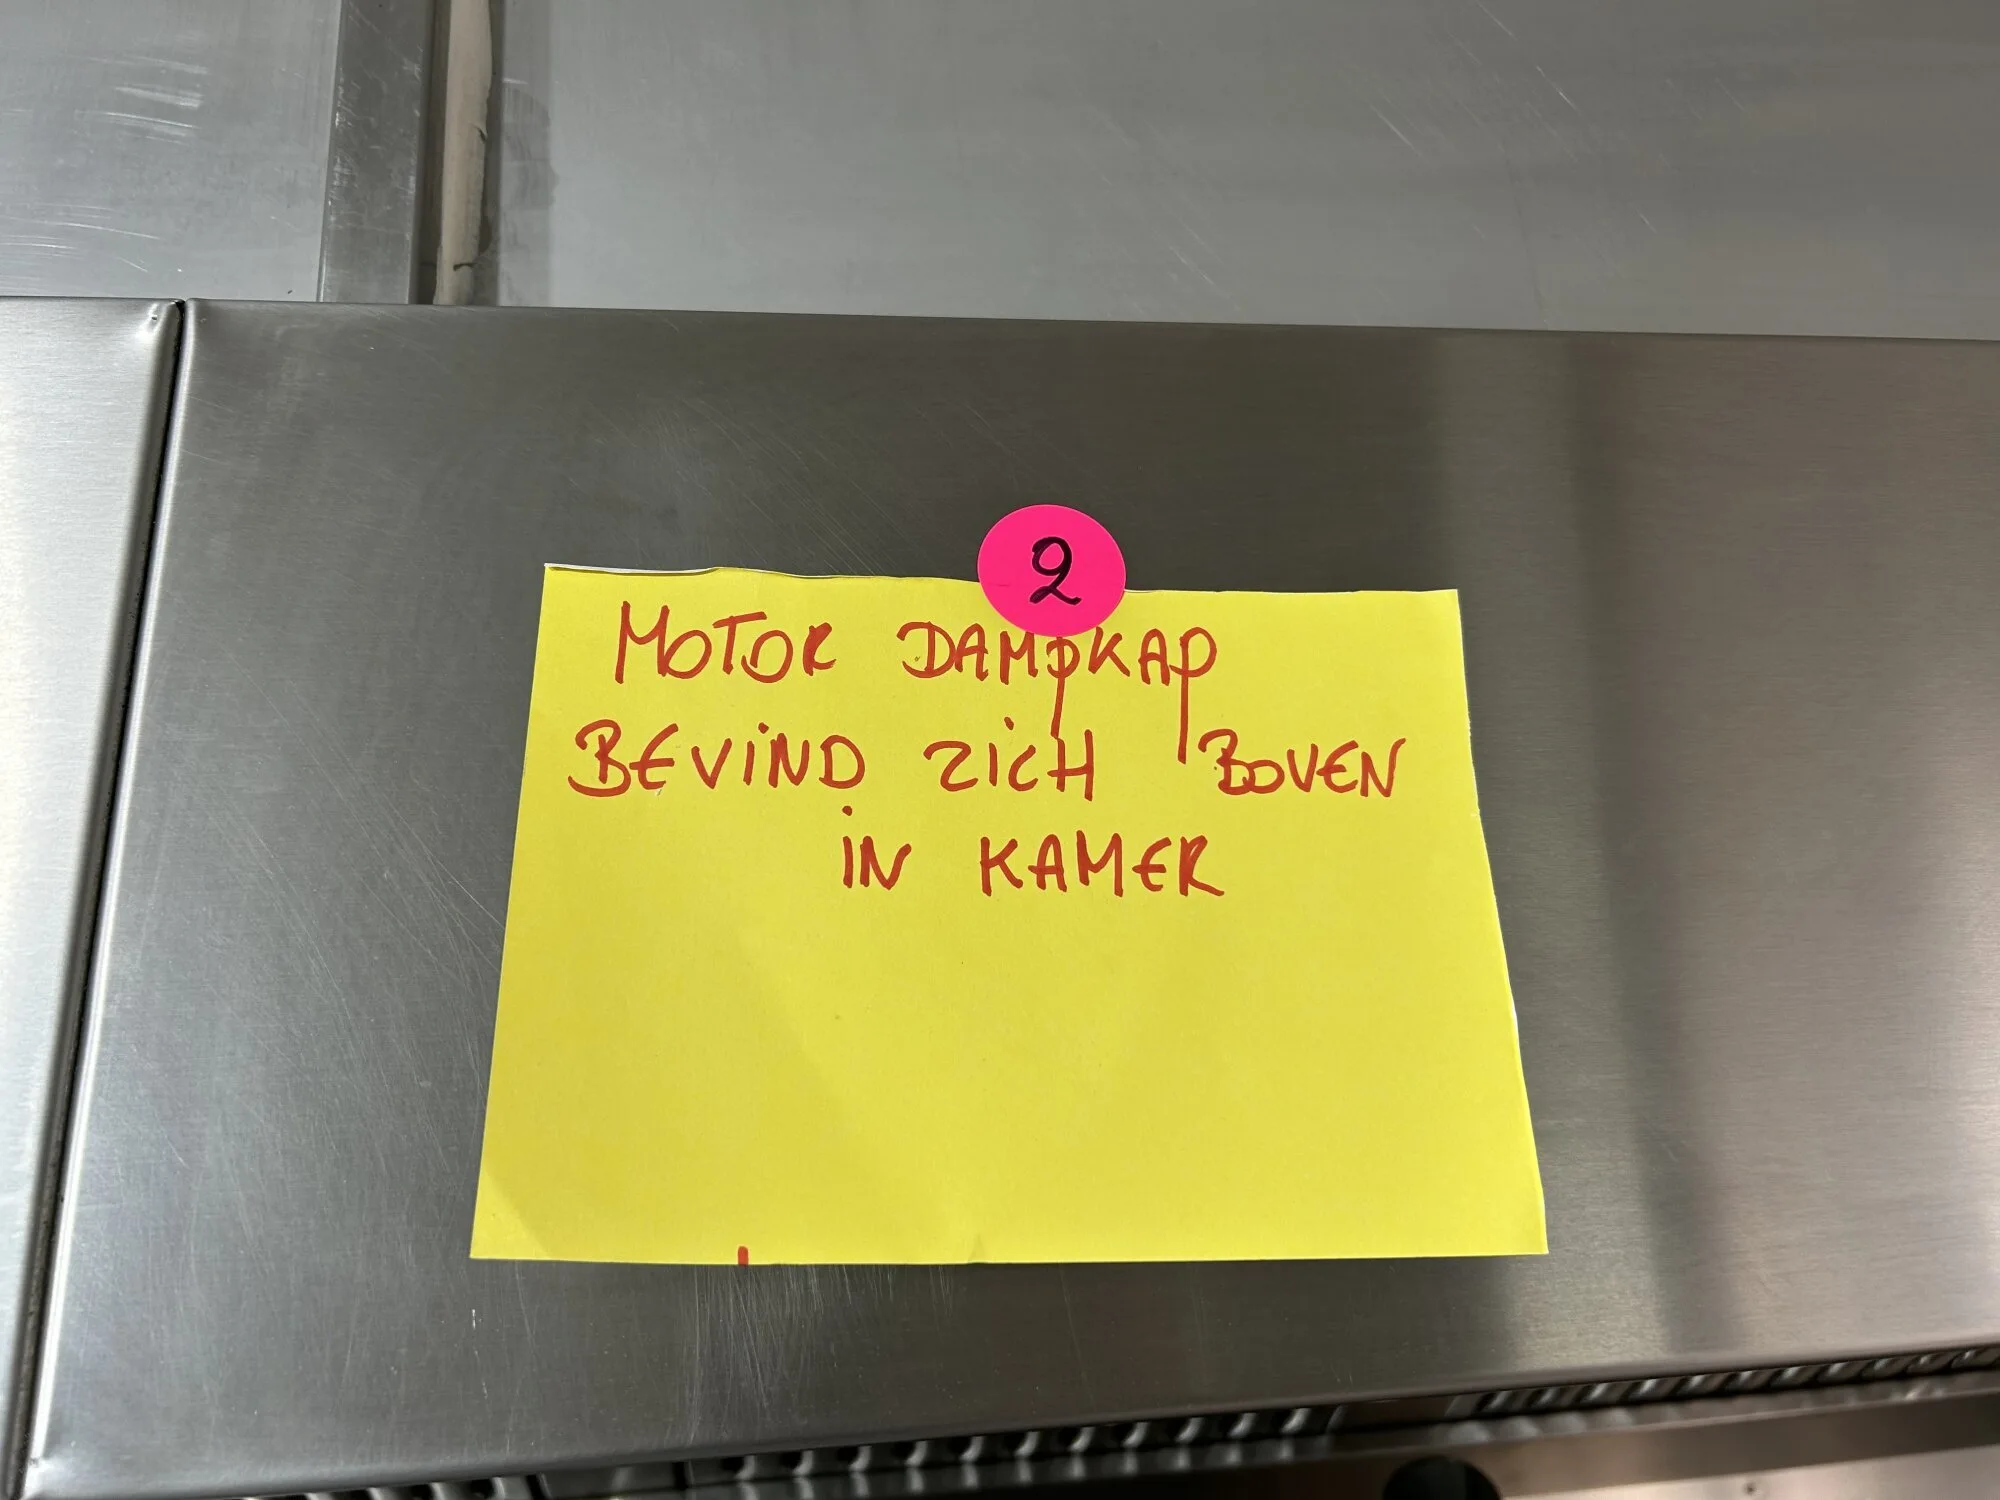 2
MOTOR DAMPKAP
BEVIND ZICH BOVEN
IN KAMER